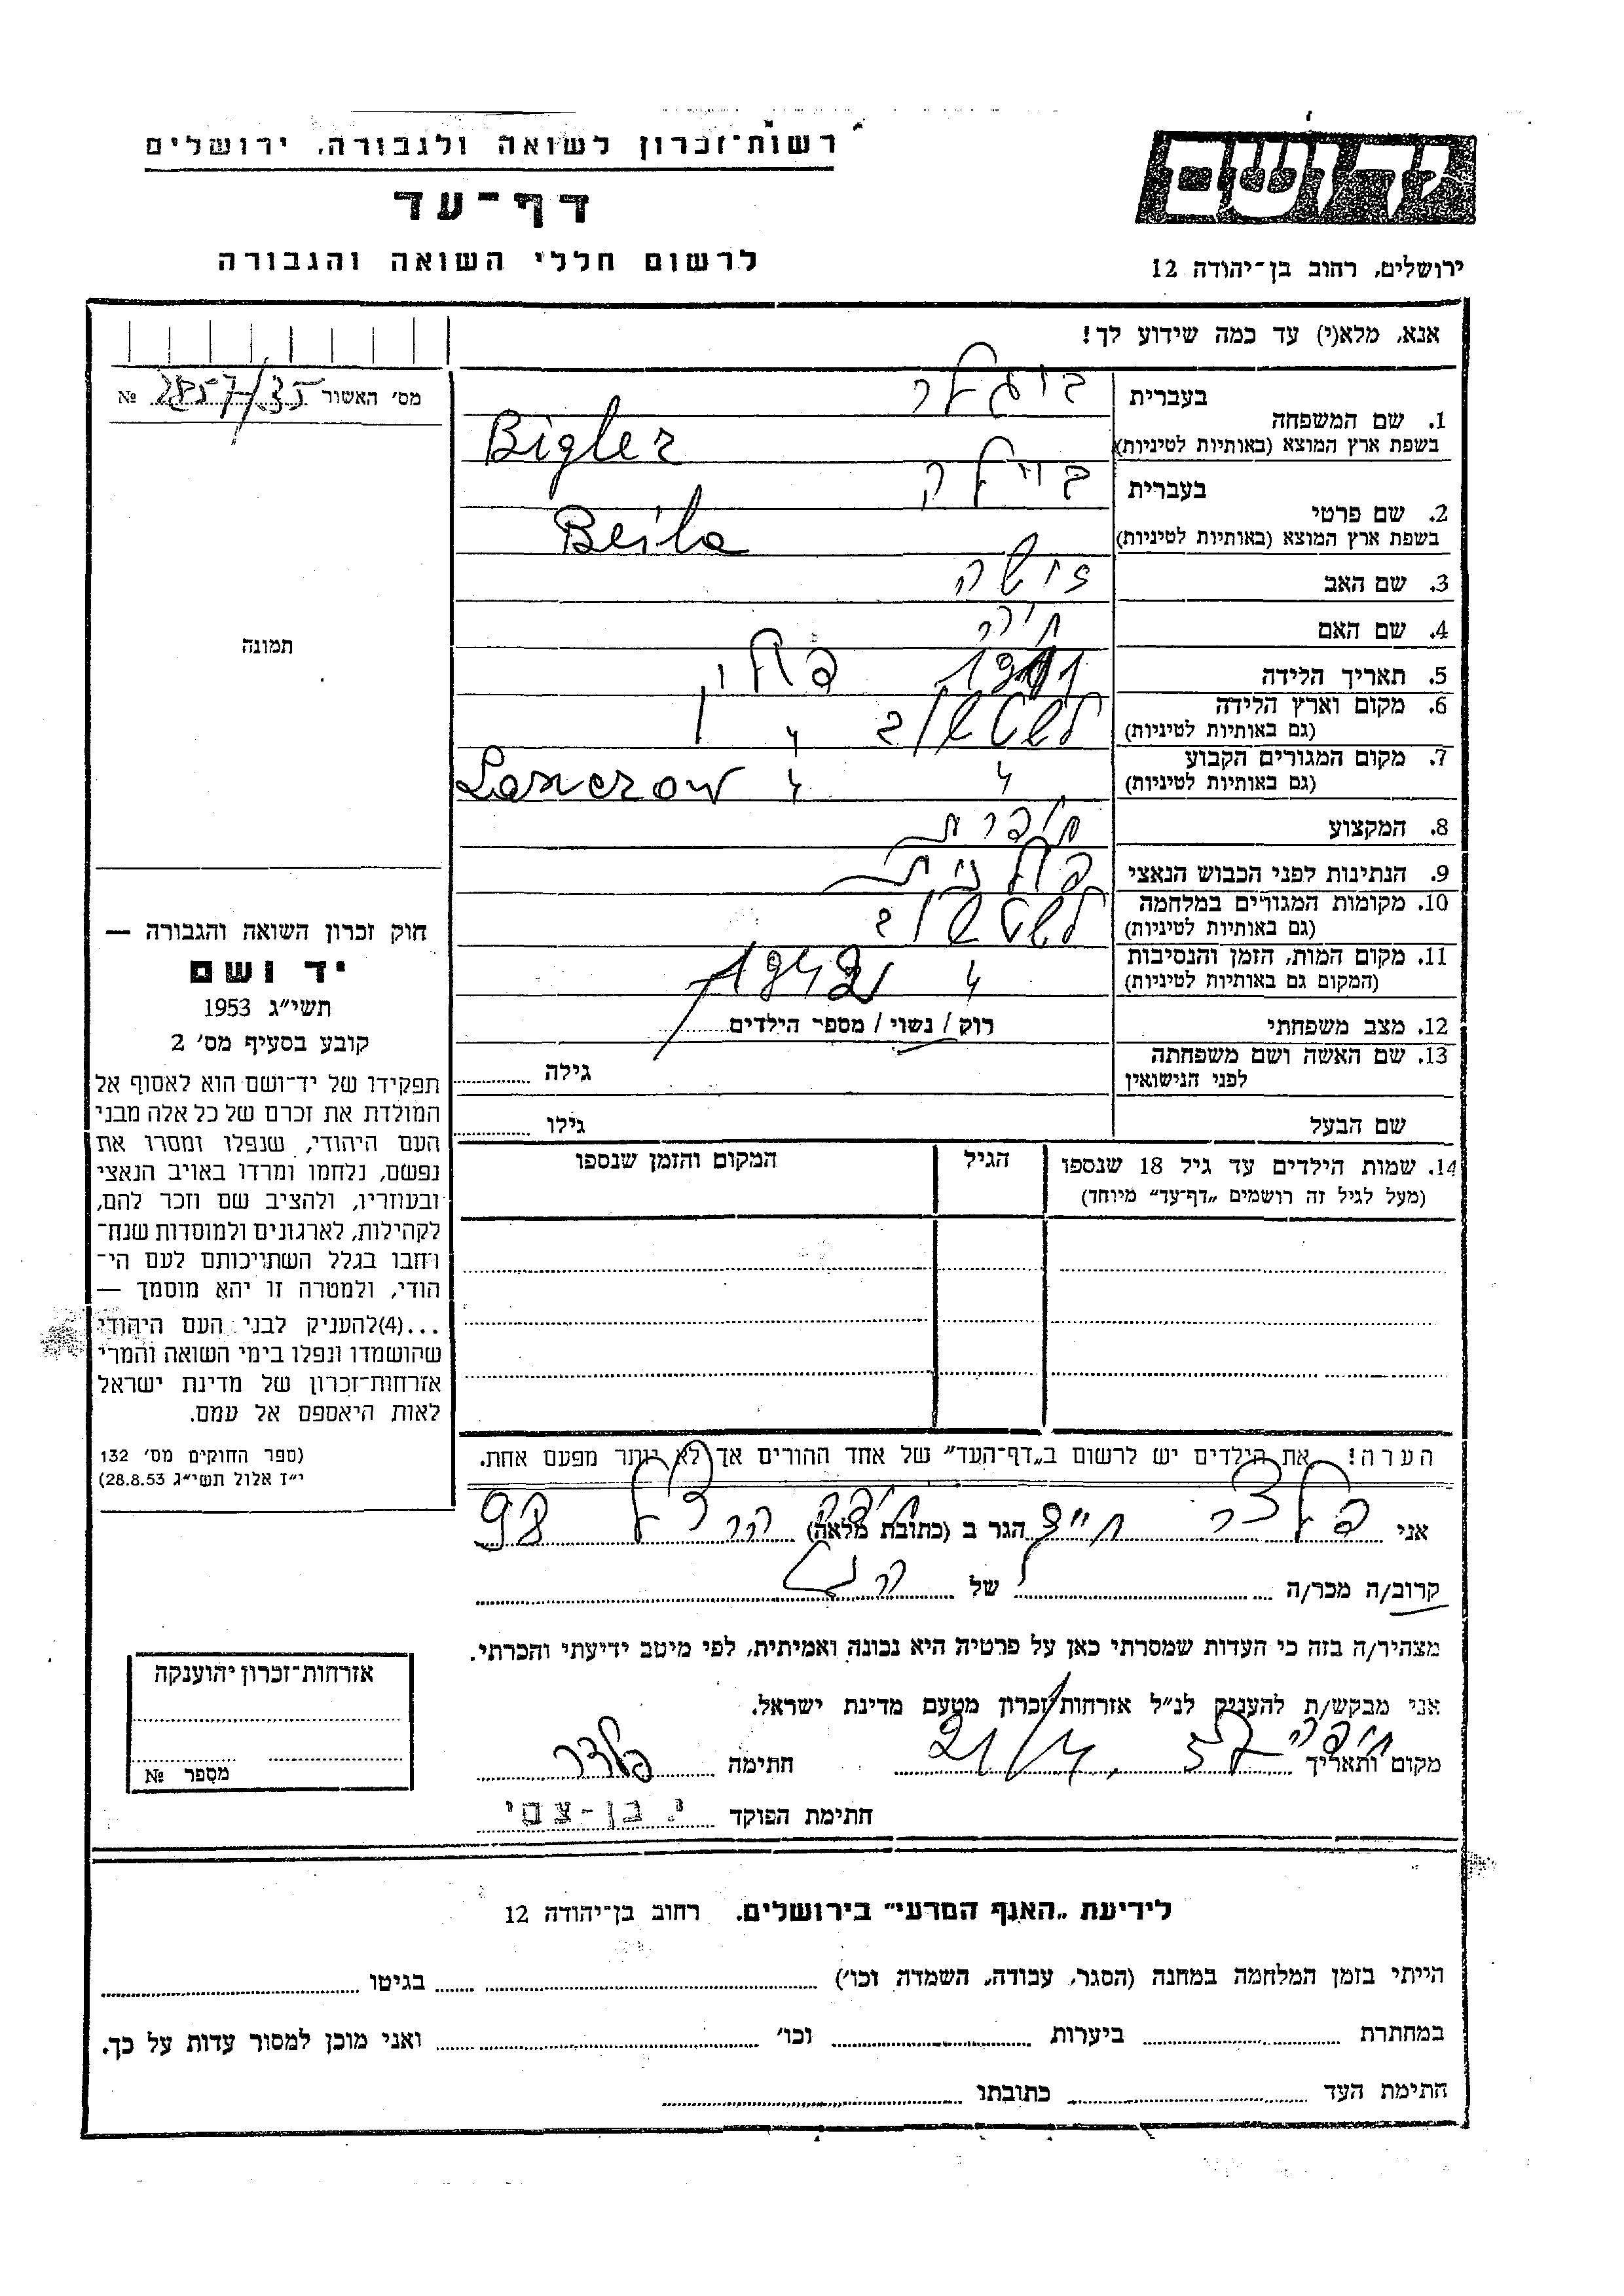 רשות־זכרון לשואה ולגבורה, ירושלים
דף־עד
לרשום חללי השואה והגבורה
יד ושם
ירושלים, רחוב בן־יהודה 12
אנא, מלא(י) עד כמה שידוע לך!
מס׳ האשור 2857/35 №
בעברית ביגלר
1. שם המשפחה
בשפת ארץ המוצא (באותיות לטיניות) Bigler
בעברית ביילה
2. שם פרטי
בשפת ארץ המוצא (באותיות לטיניות) Beila
3. שם האב
4. שם האם
5. תאריך הלידה
6. מקום וארץ הלידה
(גם באותיות לטיניות)
7. מקום המגורים הקבוע
(גם באותיות לטיניות)
8. המקצוע תופרת
9. הנתינות לפני הכבוש הנאצי פולנית
10. מקומות המגורים במלחמה
(גם באותיות לטיניות)
11. מקום המות, הזמן והנסיבות 1942
(המקום גם באותיות לטיניות)
12. מצב משפחתי רוק / נשוי / מספר הילדים
13. שם האשה ושם משפחתה
לפני הנישואין גילה
שם הבעל גילו
14. שמות הילדים עד גיל 18 שנספו הגיל המקום והזמן שנספו
(מעל לגיל זה רושמים „דף־עד״ מיוחד)
תמונה
חוק זכרון השואה והגבורה —
יד ושם
תשי״ג 1953
קובע בסעיף מס׳ 2
תפקידו של יד־ושם הוא לאסוף אל
המולדת את זכרם של כל אלה מבני
העם היהודי, שנפלו ומסרו את
נפשם, נלחמו ומרדו באויב הנאצי
ובעוזריו, ולהציב שם וזכר להם,
לקהילות, לארגונים ולמוסדות שנח־
רחבו בגלל השתייכותם לעם הי־
הודי, ולמטרה זו יהא מוסמך —
...(4)להעניק לבני העם היהודי
שהושמדו ונפלו בימי השואה והמרי
אזרחות־זכרון של מדינת ישראל
לאות היאספם אל עמם.
(ספר החוקים מס׳ 132
י״ז אלול תשי״ג 28.8.53)
הערה! את הילדים יש לרשום ב„דף־העד״ של אחד ההורים אך לא יותר מפעם אחת.
אני הגר ב (כתובת מלאה) חיפה הרצל 98
קרוב/ה מכר/ה של
מצהיר/ה בזה כי העדות שמסרתי כאן על פרטיה היא נכונה ואמיתית, לפי מיטב ידיעתי והכרתי.
אני מבקש/ת להעניק לנ״ל אזרחות־זכרון מטעם מדינת ישראל.
מקום ותאריך חיפה חתימה
חתימת הפוקד י. בן-צבי
אזרחות־זכרון יהוענקה
מספר №
לידיעת „האגף המדעי״ בירושלים. רחוב בן־יהודה 12
הייתי בזמן המלחמה במחנה (הסגר, עבודה, השמדה וכו׳) בגיטו
במחתרת ביערות וכו׳ ואני מוכן למסור עדות על כך.
חתימת העד כתובתו